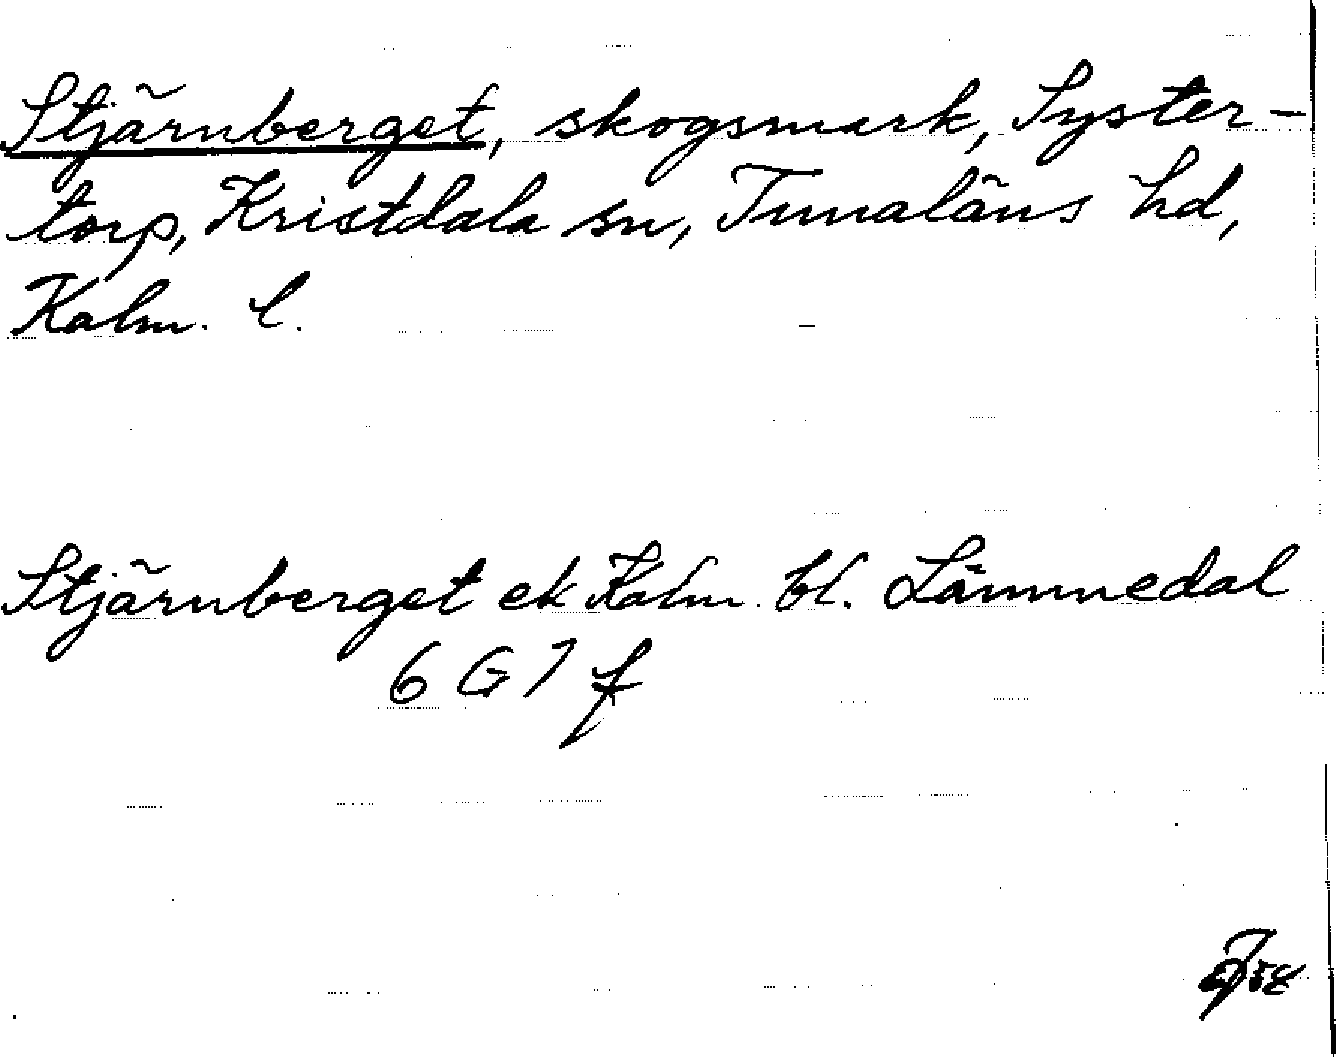 Stjärnberget, skogsmark, Syster-
torp, Kristdala sn, Tunaläns hd,
Kalm. l.
Stjärnberget ek Kalm. bl. Lämmedal
6 G 7 f